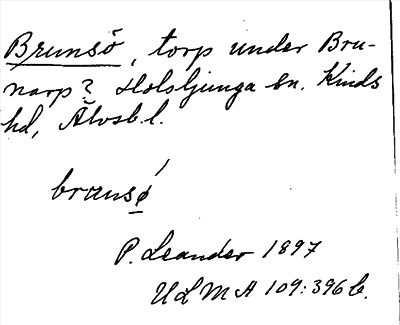 Brunsö, torp under Bru-
narp? Holsljunga sn. Kinds
hd, Älvsb. l.
brœnsó̲
P. Leander 1897
ULMA 109:396 b.